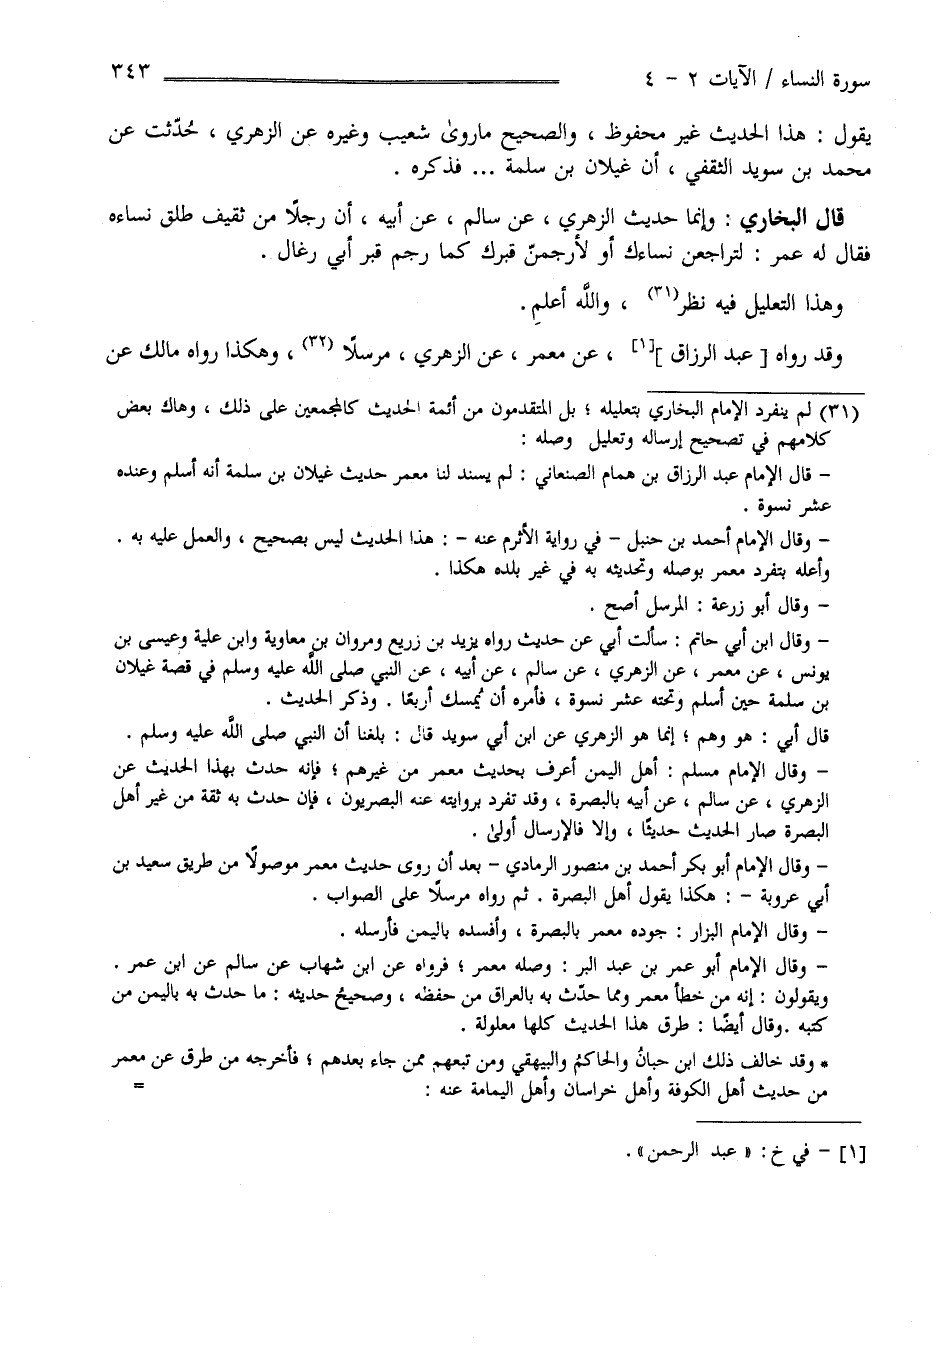 سورة النساء / الآيات ٢ - ٤
٣٤٣
يقول : هذا الحديث غير محفوظ ، والصحيح ماروىٰ شعيب وغيره عن الزهري ، حُدّثت عن
محمد بن سويد الثقفي ، أن غيلان بن سلمة ... فذكره .
قال البخاري : وإنما حديث الزهري ، عن سالم ، عن أبيه ، أن رجلًا من ثقيف طلق نساءه
فقال له عمر : لتراجعن نساءك أو لأرجمنّ قبرك كما رجم قبر أبي رغال .
وهذا التعليل فيه نظر(٣١) ، واللَّه أعلم.
وقد رواه [ عبد الرزاق ][١] ، عن معمر ، عن الزهري ، مرسلًا (٣٢) ، وهكذا رواه مالك عن
(٣١) لم ينفرد الإمام البخاري بتعليله ؛ بل المتقدمون من أئمة الحديث كالمجمعين على ذلك ، وهاك بعض
كلامهم في تصحيح إرساله وتعليل وصله :
- قال الإمام عبد الرزاق بن همام الصنعاني : لم يسند لنا معمر حديث غيلان بن سلمة أنه أسلم وعنده
عشر نسوة .
- وقال الإمام أحمد بن حنبل - في رواية الأثرم عنه - : هذا الحديث ليس بصحيح ، والعمل عليه به .
وأعله بتفرد معمر بوصله وتحديثه به في غير بلده هكذا .
- وقال أبو زرعة : المرسل أصح .
- وقال ابن أبي حاتم : سألت أبي عن حديث رواه يزيد بن زريع ومروان بن معاوية وابن علية وعيسى بن
يونس ، عن معمر ، عن الزهري ، عن سالم ، عن أبيه ، عن النبي صلى اللَّه عليه وسلم في قصة غيلان
بن سلمة حين أسلم وتحته عشر نسوة ، فأمره أن يُمسك أربعًا . وذكر الحديث .
قال أبي : هو وهم ؛ إنما هو الزهري عن ابن أبي سويد قال : بلغنا أن النبي صلى اللَّه عليه وسلم .
- وقال الإمام مسلم : أهل اليمن أعرف بحديث معمر من غيرهم ؛ فإنه حدث بهذا الحديث عن
الزهري ، عن سالم ، عن أبيه بالبصرة ، وقد تفرد بروايته عنه البصريون ، فإن حدث به ثقة من غير أهل
البصرة صار الحديث حديثًا ، وإلا فالإرسال أولىٰ .
- وقال الإمام أبو بكر أحمد بن منصور الرمادي - بعد أن روى حديث معمر موصولًا من طريق سعيد بن
أبي عروبة - : هكذا يقول أهل البصرة . ثم رواه مرسلًا على الصواب .
- وقال الإمام البزار : جوده معمر بالبصرة ، وأفسده باليمن فأرسله .
- وقال الإمام أبو عمر بن عبد البر : وصله معمر ؛ فرواه عن ابن شهاب عن سالم عن ابن عمر .
ويقولون : إنه من خطأ معمر ومما حدّث به بالعراق من حفظه ، وصحيحُ حديثه : ما حدث به باليمن من
كتبه .وقال أيضًا : طرق هذا الحديث كلها معلولة .
* وقد خالف ذلك ابن حبانُ والحاكمُ والبيهقي ومن تبعهم ممن جاء بعدهم ؛ فأخرجه من طرق عن معمر
من حديث أهل الكوفة وأهل خراسان وأهل اليمامة عنه : =
[١] - في خ : « عبد الرحمن» .